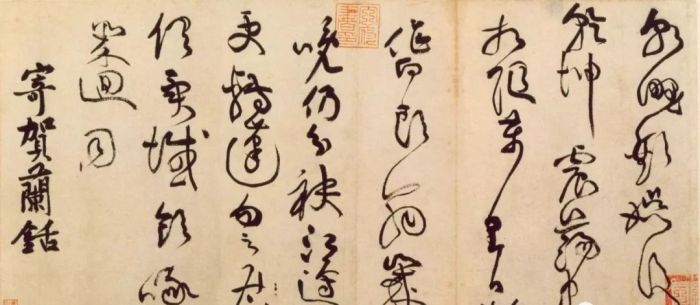 朝野歡娛後
乾坤震蕩中
相隨萬里日
作白頭翁歲
晚仍分袂江邊
更轉蓬勿云
俱異域飲啄
幾迴同
寄賀蘭銛